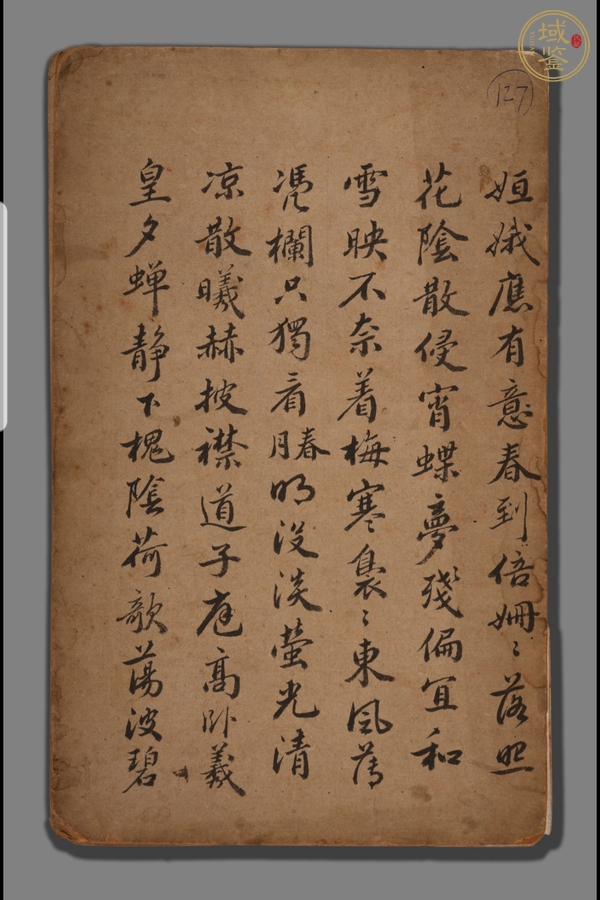 姮娥應有意春到倍姍〻落照
花陰散侵宵蝶夢殘偏宜和
雪映不奈着梅寒裊〻東風薄
凭欄只獨看月春明没淡螢光清
凉散曦赫披襟道子庭高卧羲
皇夕蝉静下槐陰荷歌蕩波碧
127
域鉴